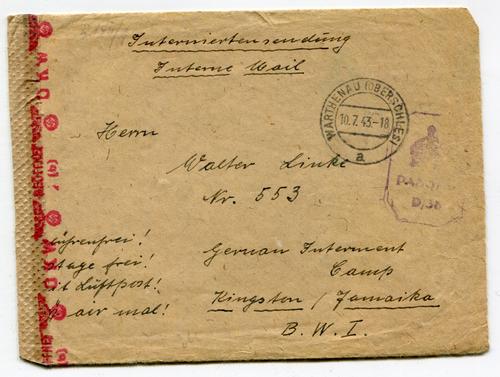 Interniertensendung
Interne Mail
WARTHENAU (OBERSCHLES)
10.7.43-18
a
Herrn
Walter Linke
Nr. 553
PASSED
D/38
German Interment
Camp
Kingston / Jamaika
B. W. I.
ührenfrei!
tage frei!
it Luftpost!
aer mal!
OKW
OKW
(b)
(b)